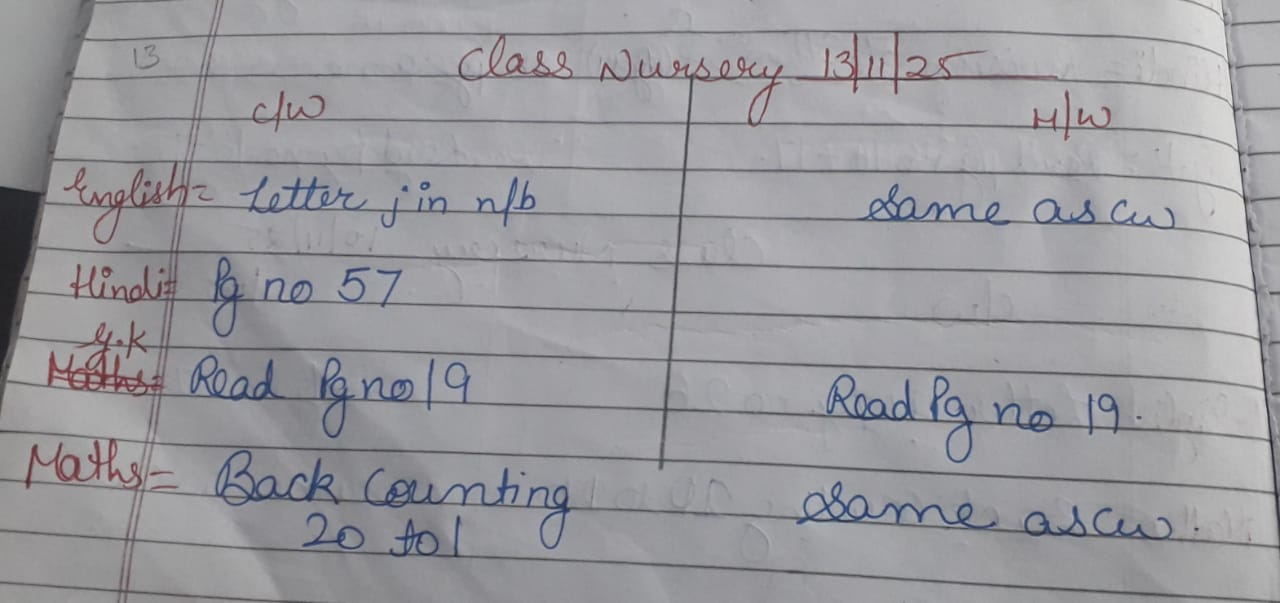 13
Class Nursery 13/11/25
C/W H/W
English = Letter j in n/b same as cw
Hindi = Pg no 57
G.K
Maths = Read Pg no 19 Read Pg no 19.
Maths = Back Counting same as cw.
20 to 1